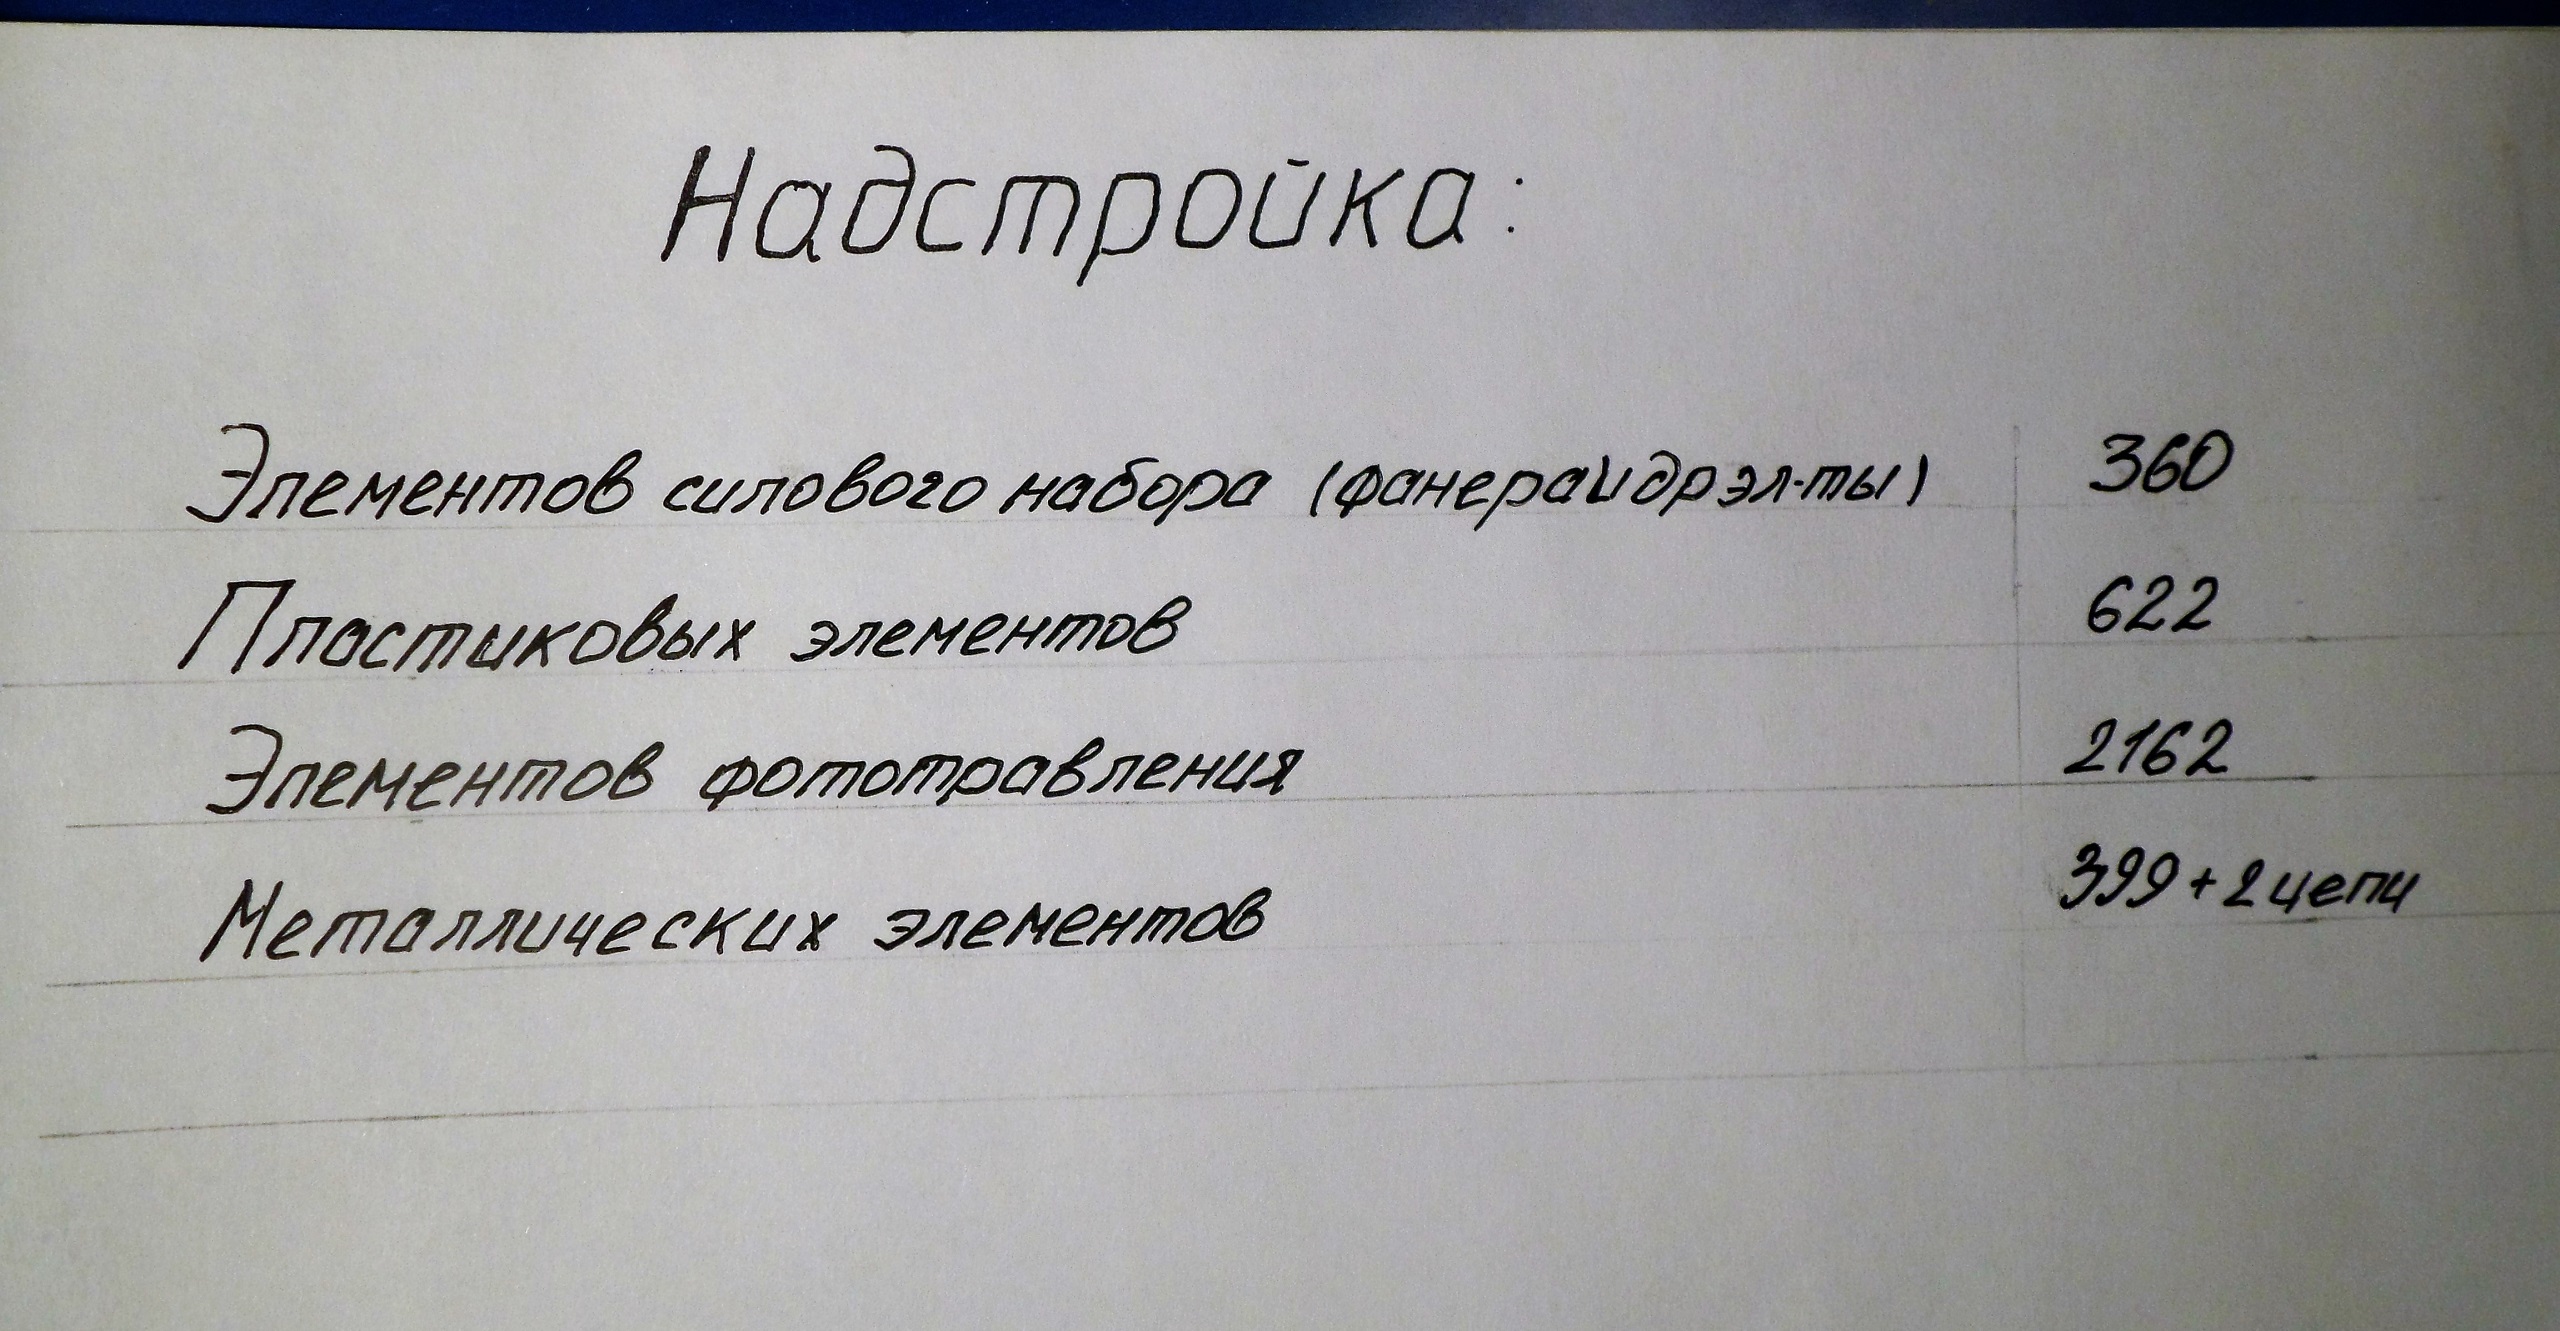 Надстройка:
Элементов силового набора (фанера и др эл-ты) 360
Пластиковых элементов 622
Элементов фототравления 2162
Металлических элементов 399 + 2 цепи